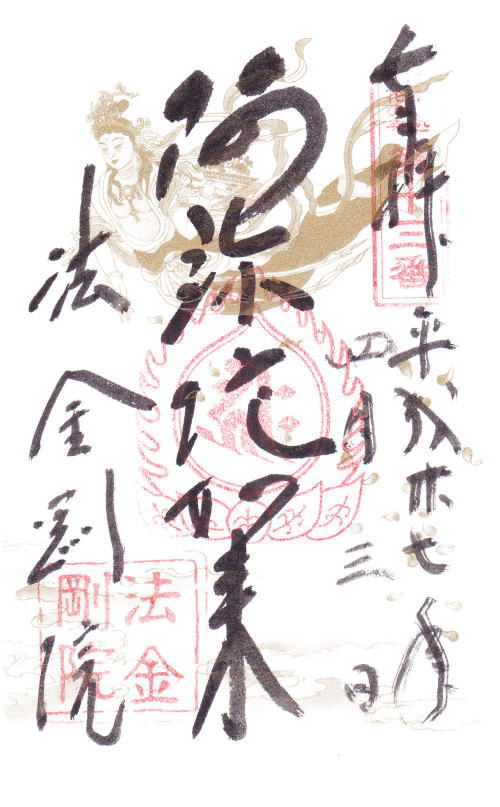 奉拝
十三番
平成廿七年
四月三日
阿弥陀如来
法金剛院
法金
剛院